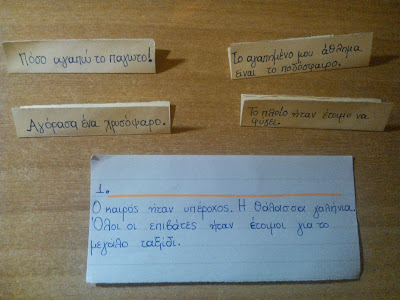 Πόσο αγαπώ το παγωτό!
Το αγαπημένο μου άθλημα
είναι το ποδόσφαιρο.
Αγόρασα ένα χρυσόψαρο.
Το πλοίο ήταν έτοιμο να
φύγει.
1.
Ο καιρός ήταν υπέροχος. Η θάλασσα γαλήνια.
Όλοι οι επιβάτες ήταν έτοιμοι για το
μεγάλο ταξίδι.